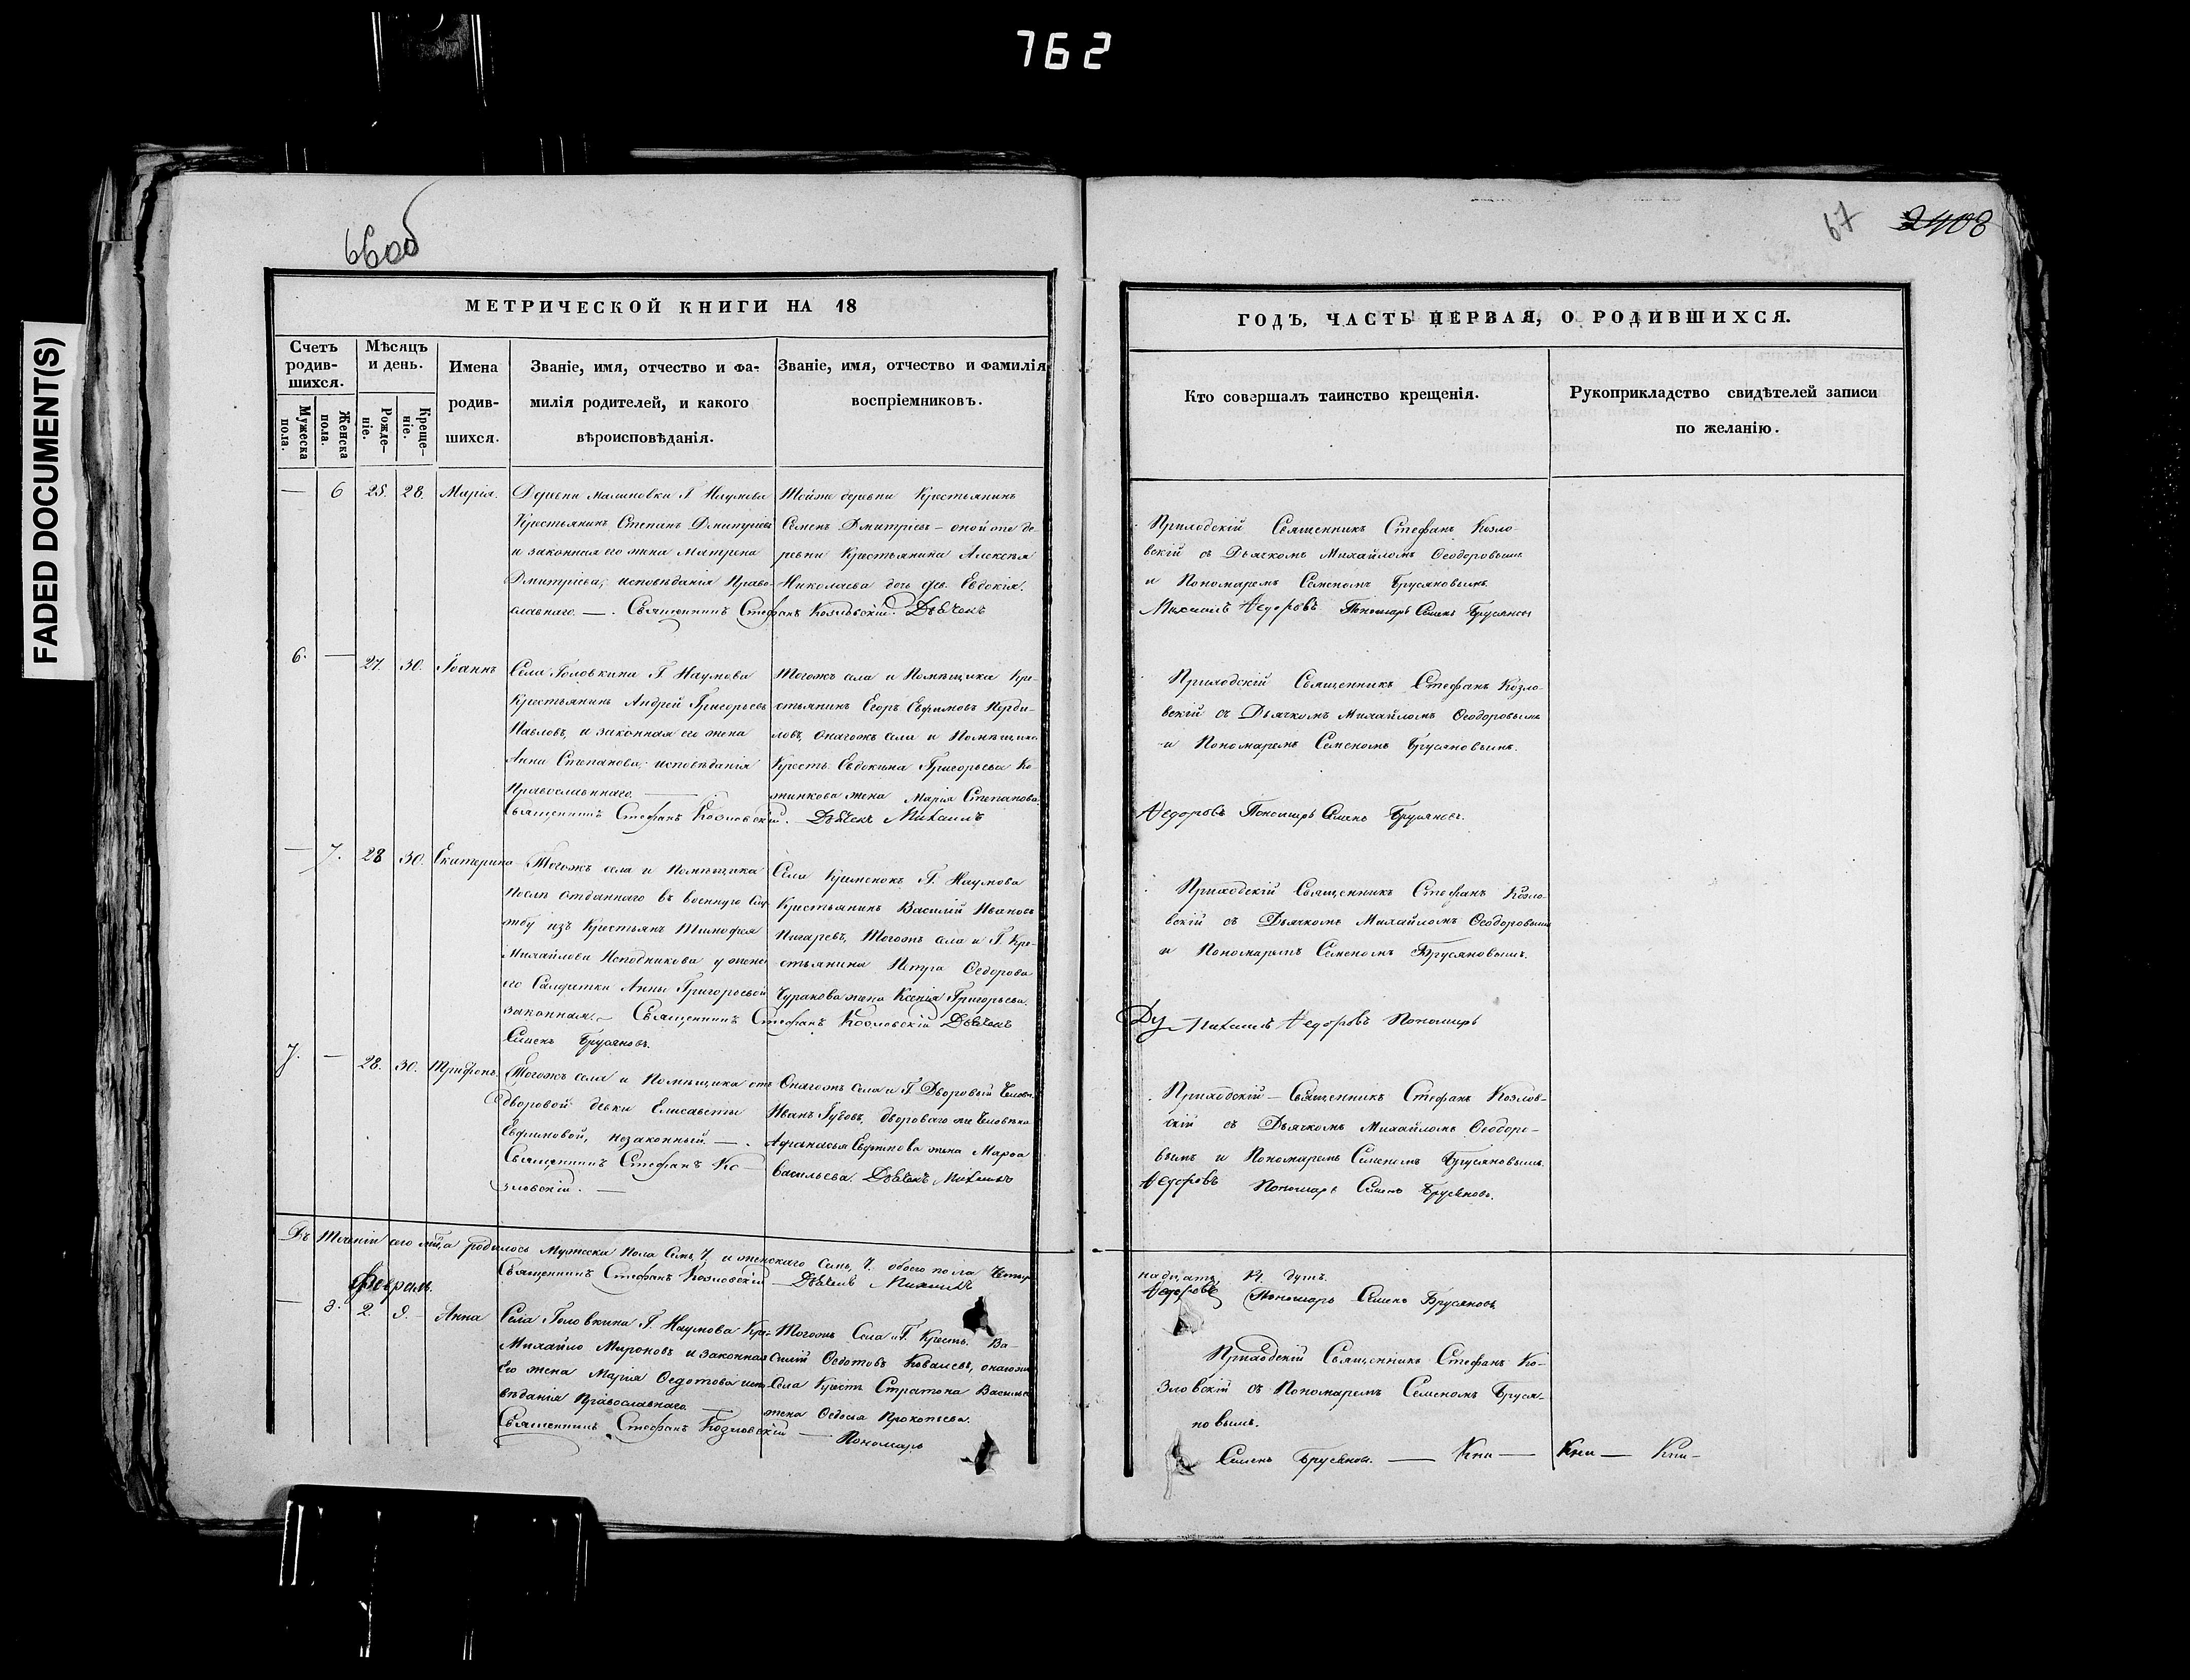 762
FADED DOCUMENT(S)
66об
67 2408
МЕТРИЧЕСКОЙ КНИГИ НА 18
Счетъ родившихся.
Мужеска пола.
Женска пола.
Мѣсяцъ и день.
Рожденіе.
Крещеніе.
Имена родившихся.
Званіе, имя, отчество и фамилія родителей, и какого вѣроисповѣданія.
Званіе, имя, отчество и фамилія воспріемниковъ.
ГОДЪ, ЧАСТЬ ПЕРВАЯ, О РОДИВШИХСЯ.
Кто совершалъ таинство крещенія.
Рукоприкладство свидѣтелей записи по желанію.
— 6 25. 28. Марія.
Деревни Малиновки Г. Наумова
Крестьянинъ Степанъ Дмитріевъ
и законная его жена Матрена
Дмитріева, исповѣданія Право-
славнаго. —. Священникъ Стефанъ Козловскій. Дьячекъ
Тойже деревни Крестьянинъ
Семенъ Дмитріевъ — оной же де-
ревни Крестьянина Алексѣя
Николаева дочь дев. Евдокія.
Приходскій Священникъ Стефанъ Козло-
вскій съ Дьячкомъ Михайломъ Ѳеодоровымъ
и Пономаремъ Семеномъ Брусяновымъ.
Михаилъ Ѳедоровъ Пономарь Семенъ Брусяновъ
6. — 27. 30. Іоаннъ
Села Головкина Г. Наумова
Крестьянинъ Андрей Григорьевъ
Павловъ, и законная его жена
Анна Степанова, исповѣданія
Православнаго. —
Священникъ Стефанъ Козловскій. Дьячекъ Михаилъ
Тогожъ села и Помѣщика Кре-
стьянинъ Егоръ Евфимовъ
ловъ, Онагожъ села и Помѣщика
Кресть. Евдокима Григорьева
жена Марія Степанова.
Приходскій Священникъ Стефанъ Козло-
вскій съ Дьячкомъ Михайломъ Ѳеодоровымъ
и Пономаремъ Семеномъ Брусяновымъ.
Ѳедоровъ Пономарь Семенъ Брусяновъ.
— 7. 28 30. Екатерина
Тогожъ села и Помѣщика
послѣ отданнаго въ военную слу-
жбу изъ Крестьянъ Тимофея
Михайлова у жены
его Салдатки Анны Григорьевой
законная. — Священникъ Стефанъ Козловскій Дьячекъ
Семенъ Брусяновъ.
Села Кременокъ Г. Наумова
Крестьянинъ Василій Ивановъ
Пигаревъ, Тогожъ села и Г. Кре-
стьянина Петра Ѳедорова
Чуракова жена Ксенія Григорьева.
Приходскій Священникъ Стефанъ Козло-
вскій съ Дьячкомъ Михайломъ Ѳеодоровымъ
и Пономаремъ Семеномъ Брусяновымъ.
Михаилъ Ѳедоровъ Пономарь
7. — 28. 30. Трифонъ.
Тогожъ села и Помѣщика отъ
дворовой девки Елисаветы
Евфимовой, незаконный. —.
Священникъ Стефанъ Ко-
зловскій. —
Онагожъ Села и Г. Дворовый Челов.
Иванъ Губовъ, двороваго же Человѣка
Афанасья Евфимова жена Марѳа
Васильева. Дьячекъ Михаилъ
Приходскій — Священникъ Стефанъ Козлов-
скій съ Дьячкомъ Михайломъ Ѳеодоро-
вымъ и Пономаремъ Семеномъ Брусяновымъ.
Ѳедоровъ Пономарь Семенъ Брусяновъ.
Въ теченіи сего мѣсяца родилось Мужеска Пола Семь, 7. и женскаго Семь, 7. обоего пола Четыр-
надцать, 14. душъ.
Священникъ Стефанъ Козловскій — Дьячекъ Михаилъ
Ѳедоровъ Пономарь Семенъ Брусяновъ
Февраль.
— 8. 2. 9. Анна
Села Головкина Г. Наумова Кре.
Михайло Мироновъ и законная
его жена Марія Ѳедотова испо-
вѣданія Православнаго. —
Священникъ Стефанъ Козловскій — Пономарь
Тогожъ Села и Г. Кресть. Ва-
силій Ѳедотовъ Ковалевъ, онагожъ
Села Крест. Стратона Василье
жена Ѳедосья Прокопьева.
Приходскій Священникъ Стефанъ Ко-
зловскій съ Пономаремъ Семеномъ Бруся-
новымъ.
Семенъ Брусяновъ. —